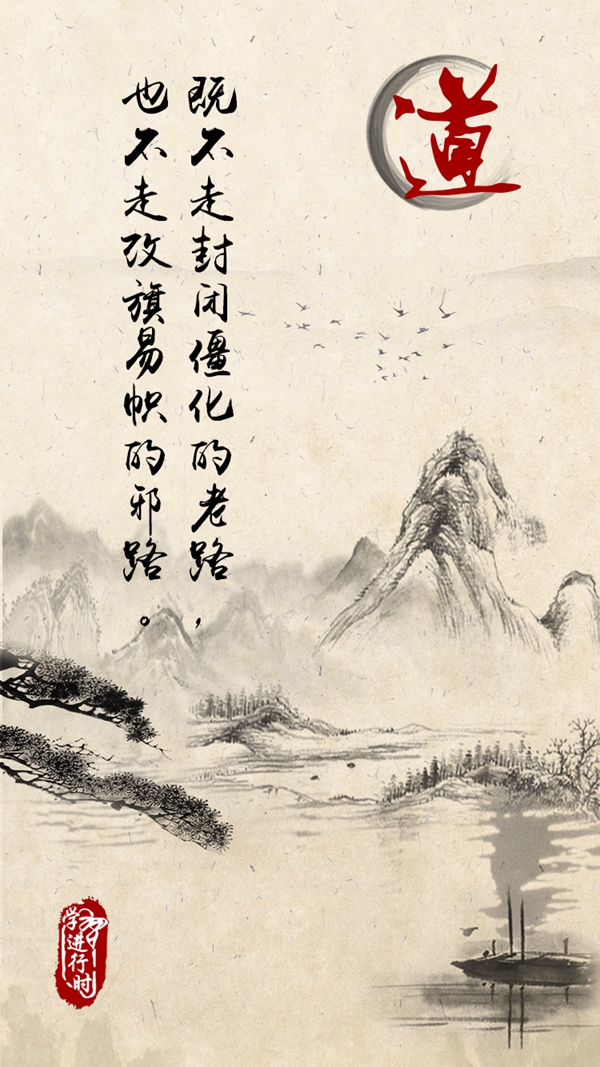 道
既不走封闭僵化的老路，
也不走改旗易帜的邪路。
学习进行时